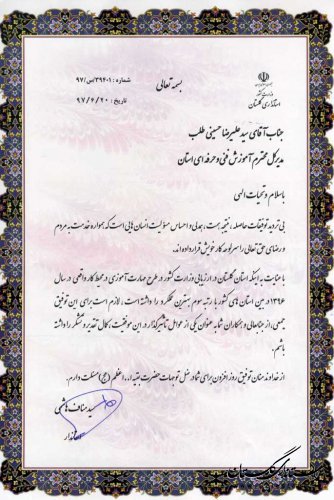 بسمه تعالی
شماره : ۳۹۴۰۱/س/۹۷
تاریخ : ۹۷/۶/۲۰
وزارت کشور
استانداری گلستان
جناب آقای سید علیرضا حسینی طلب
مدیرکل محترم آموزش فنی و حرفه ای استان
با سلام و تحیات الهی
بی تردید توفیقات حاصله، نتیجه همدلی و احساس مسؤلیت انسان هایی است که همواره خدمت به مردم
و رضای حق تعالی را سرلوحه کار خویش قرار داده اند.
با عنایت به اینکه استان گلستان در ارزیابی وزارت کشور در طرح مهارت آموزی در محیط کار واقعی در سال
۱۳۹۶ در بین استان های کشور با رتبه سوم بهترین عملکرد را داشته است، لازم است برای این توفیق
جمعی، از جنابعالی و همکاران شما به عنوان یکی از عوامل تأثیرگذار در این موفقیت، کمال تقدیر و تشکر را داشته
باشم.
از خداوند منان توفیق روز افزون برای شما در ظل توجهات حضرت بقیه ا... اعظم (عج) مسئلت دارم.
سید مناف هاشمی
استاندار
گلستان